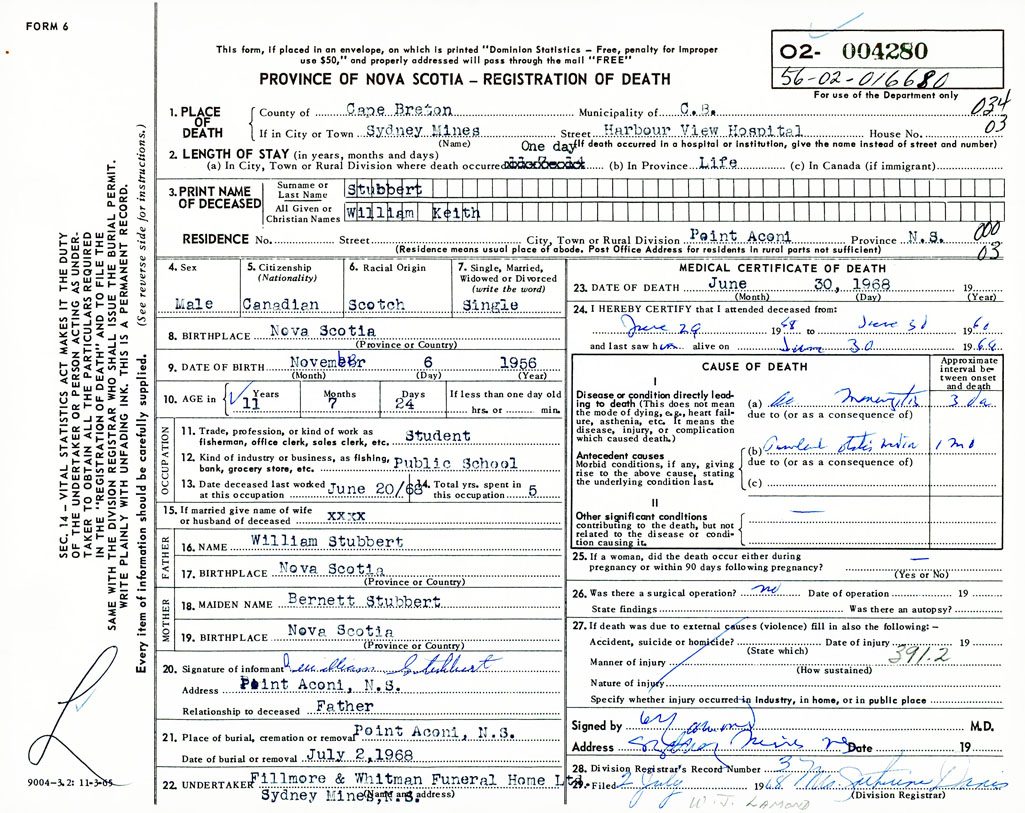 FORM 6
This form, if placed in an envelope, on which is printed "Dominion Statistics – Free, penalty for improper
use $50," and properly addressed will pass through the mail "FREE"
PROVINCE OF NOVA SCOTIA – REGISTRATION OF DEATH
02- 004280
56-02-016680
For use of the Department only
034
03
1. PLACE OF DEATH
County of Cape Breton Municipality of C.B.
If in City or Town Sydney Mines Street Harbour View Hospital House No.
(Name) (If death occurred in a hospital or institution, give the name instead of street and number)
2. LENGTH OF STAY (in years, months and days) One day
(a) In City, Town or Rural Division where death occurred (b) In Province Life (c) In Canada (if immigrant)
3. PRINT NAME OF DECEASED
Surname or Last Name Stubbert
All Given or Christian Names William Keith
RESIDENCE No. Street City, Town or Rural Division Point Aconi Province N.S.
(Residence means usual place of abode. Post Office Address for residents in rural parts not sufficient)
000
03
4. Sex Male
5. Citizenship (Nationality) Canadian
6. Racial Origin Scotch
7. Single, Married, Widowed or Divorced (write the word) Single
8. BIRTHPLACE Nova Scotia
(Province or Country)
9. DATE OF BIRTH November 6 1956
(Month) (Day) (Year)
10. AGE in Years 11 Months 7 Days 24 If less than one day old hrs. or min.
OCCUPATION
11. Trade, profession or kind of work as fisherman, office clerk, sales clerk, etc. Student
12. Kind of industry or business, as fishing, bank, grocery store, etc. Public School
13. Date deceased last worked at this occupation June 20/68 14. Total yrs. spent in this occupation 5
15. If married give name of wife or husband of deceased xxxx
FATHER
16. NAME William Stubbert
17. BIRTHPLACE Nova Scotia
(Province or Country)
MOTHER
18. MAIDEN NAME Bernett Stubbert
19. BIRTHPLACE Nova Scotia
(Province or Country)
20. Signature of informant William Stubbert
Address Point Aconi, N.S.
Relationship to deceased Father
21. Place of burial, cremation or removal Point Aconi, N.S.
Date of burial or removal July 2,1968
22. UNDERTAKER Fillmore & Whitman Funeral Home Ltd.
Sydney Mines, N.S.
(Name and address)
MEDICAL CERTIFICATE OF DEATH
23. DATE OF DEATH June 30, 1968 19
(Month) (Day) (Year)
24. I HEREBY CERTIFY that I attended deceased from:
June 29 1968 to June 30 19
and last saw h alive on June 30 1968
CAUSE OF DEATH
Approximate interval between onset and death
I
Disease or condition directly leading to death (This does not mean the mode of dying, e.g., heart failure, asthenia, etc. It means the disease, injury, or complication which caused death.)
(a) 3 da
due to (or as a consequence of)
Antecedent causes
Morbid conditions, if any, giving rise to the above cause, stating the underlying condition last.
(b) 1 mo
due to (or as a consequence of)
(c)
II
Other significant conditions
contributing to the death, but not related to the disease or condition causing it.
25. If a woman, did the death occur either during
pregnancy or within 90 days following pregnancy? —
(Yes or No)
26. Was there a surgical operation? no Date of operation 19
State findings Was there an autopsy?
27. If death was due to external causes (violence) fill in also the following: –
Accident, suicide or homicide? Date of injury 19
(State which)
391.2
Manner of injury
(How sustained)
Nature of injury
Specify whether injury occurred in Industry, in home, or in public place
Signed by M.D.
Address Sydney Mines NS Date 19
28. Division Registrar's Record Number 37
29. Filed 2 July 1968
(Division Registrar)
W. J. LAMOND
SEC. 14 – VITAL STATISTICS ACT MAKES IT THE DUTY
OF THE UNDERTAKER OR PERSON ACTING AS UNDER-
TAKER TO OBTAIN ALL THE PARTICULARS REQUIRED
IN THE "REGISTRATION OF DEATH" AND TO FILE THE
SAME WITH THE DIVISION REGISTRAR WHO SHALL ISSUE THE BURIAL PERMIT.
WRITE PLAINLY WITH UNFADING INK. THIS IS A PERMANENT RECORD.
Every item of information should be carefully supplied. (See reverse side for instructions.)
9004-3.2: 11-3-65